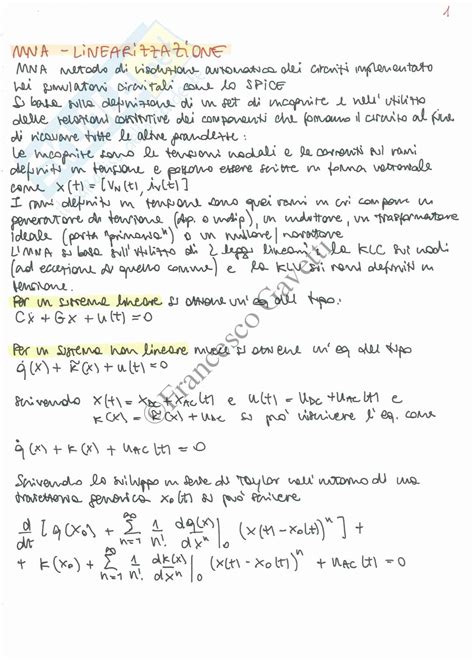 1
MNA - LINEARIZZAZIONE
MNA metodo di risoluzione automatica dei circuiti implementato
nei simulatori circuitali come lo SPICE
Si basa sulla definizione di un set di incognite e nell'utilizzo
delle relazioni costitutive dei componenti che formano il circuito al fine
di ricavare tutte le altre grandezze:
Le incognite sono le tensioni nodali e le correnti sui rami
definiti in tensione e possono essere scritte in forma vettoriale
come x(t) = [VN(t), iv(t)]
I rami definiti in tensione sono quei rami in cui compare un
generatore di tensione (dip. o indip), un induttore, un trasformatore
ideale (porta "primaria") o un nullare/norattore
L'MNA si basa sull'utilizzo di 2 leggi lineari: la KLC sui nodi
(ad eccezione di quello comune) e la KLV sui rami definiti in
tensione.
Per un sistema lineare si ottiene un'eq del tipo:
Cẋ + Gx + u(t) = 0
Per un sistema non lineare invece si ottiene un'eq del tipo
q̇(x) + k̃(x) + u(t) = 0
scrivendo x(t) = xDC + xAC(t) e u(t) = uDC + uAC(t) e
k(x) = k̃(x) + uDC si può riscrivere l'eq. come
q̇(x) + k(x) + uAC(t) = 0
Scrivendo lo sviluppo in serie di Taylor nell'intorno di una
traiettoria generica x0(t) si può scrivere
d/dt [q(x0) + ∑n=1^∞ 1/n! dq(x)/dx^n |0 (x(t) - x0(t))^n] +
+ k(x0) + ∑n=1^∞ 1/n! dk(x)/dx^n |0 (x(t) - x0(t))^n + uAC(t) = 0
©Francesco Gavetti